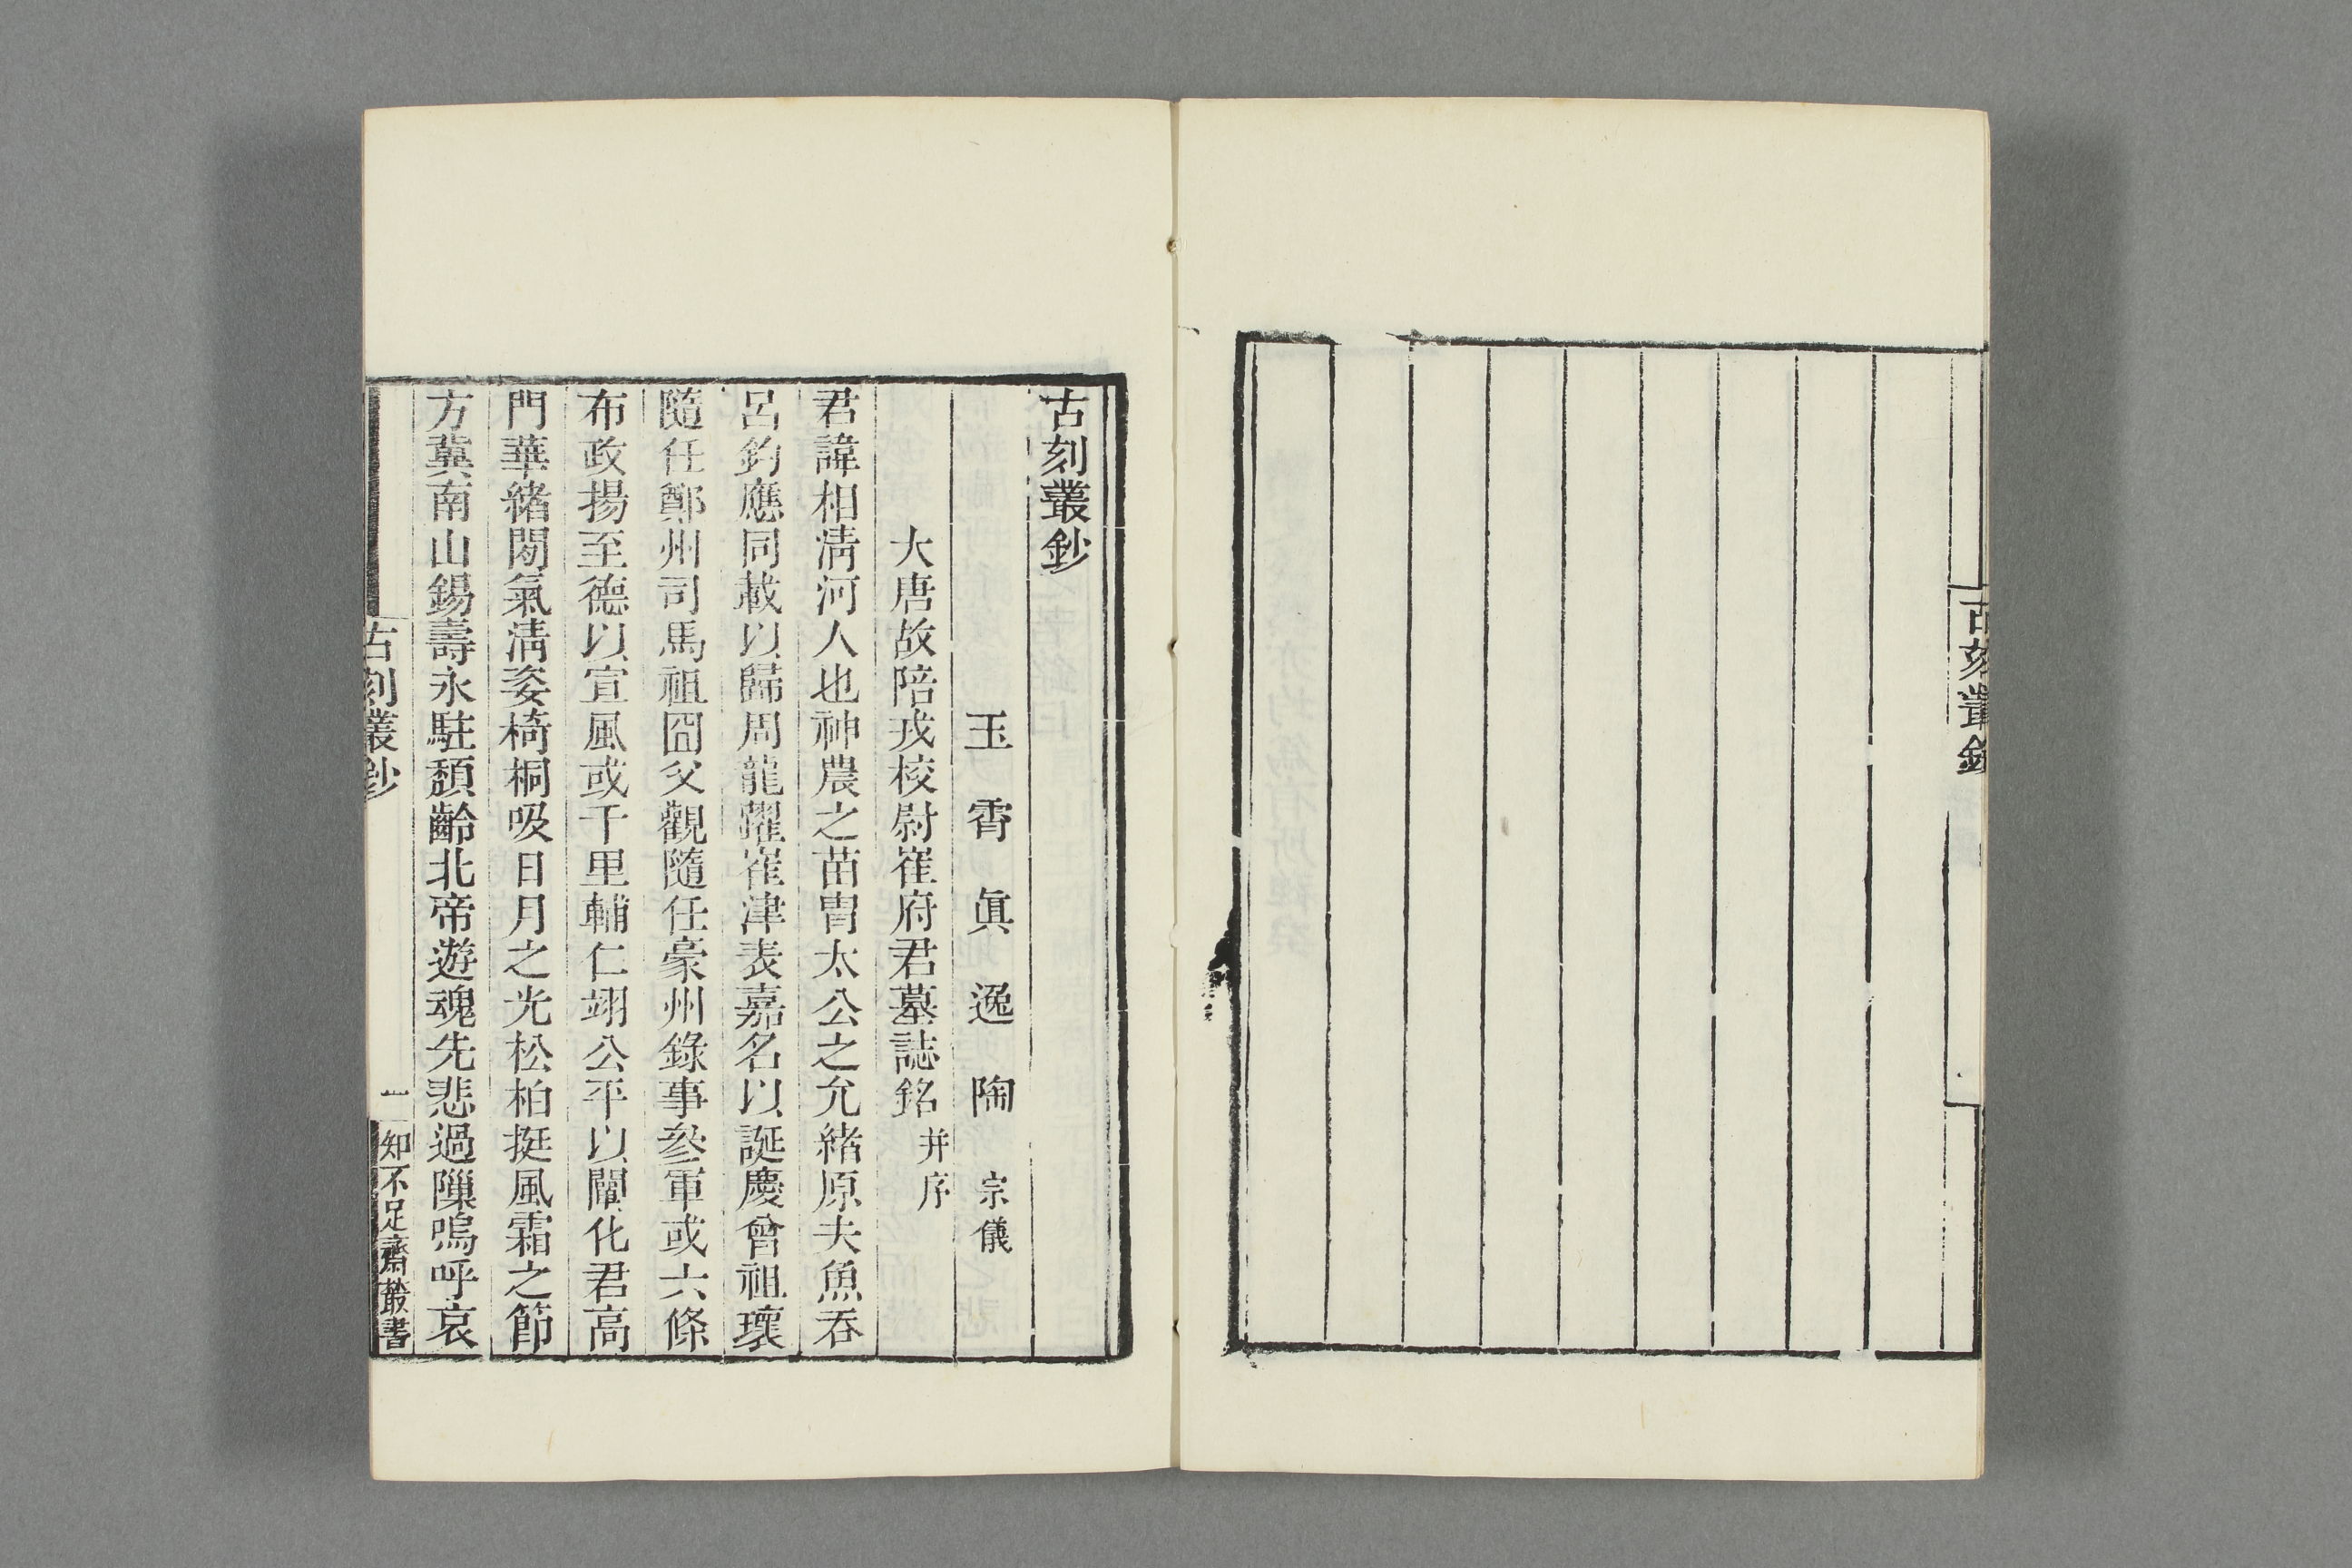 古刻叢鈔
古刻叢鈔
玉霄眞逸陶宗儀
大唐故陪戎校尉崔府君墓誌銘并序
君諱相淸河人也神農之苗冑太公之允緒原夫魚吞
呂鈞應同載以歸周龍躍崔津表嘉名以誕慶曾祖瓌
隨任鄭州司馬祖囧父觀隨任豪州錄事參軍或六條
布政揚至德以宣風或千里輔仁翊公平以闡化君高
門華緖閒氣淸姿椅桐吸日月之光松柏挺風霜之節
方冀南山錫壽永駐頹齡北帝遊魂先悲過隟嗚呼哀
古刻叢鈔
一
知不足齋叢書